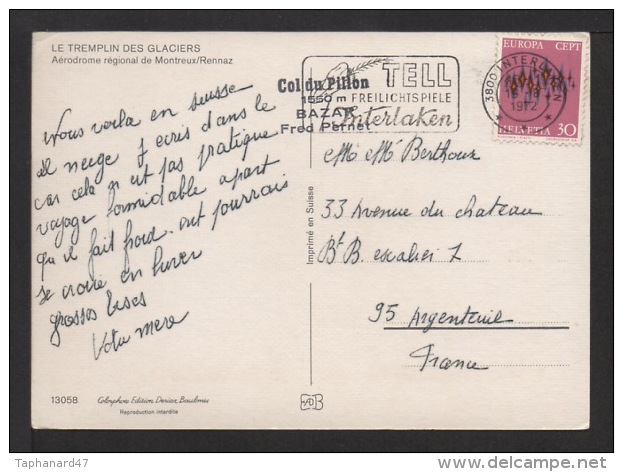 LE TREMPLIN DES GLACIERS
Aérodrome régional de Montreux/Rennaz
Nous voila en suisse
il neige j ecris dans le
car cela n est pas pratique
voyage formidable apart
qu il fait froid. ont pourrais
se croire en hiver
grosses bises
Votre mere
Col du Pillon
1550 m
BAZAR
Fred Pernet
TELL
FREILICHTSPIELE
Interlaken
3800 INTERLAKEN
1972
EUROPA CEPT
HELVETIA 30
Berthoux
33 Avenue du chateau
Bt B. escalier 1
95 Argenteuil
France
Imprimé en Suisse
13058
Colorphoto Edition Dériaz Baulmes
Reproduction interdite
Taphanard47
delcampe.net